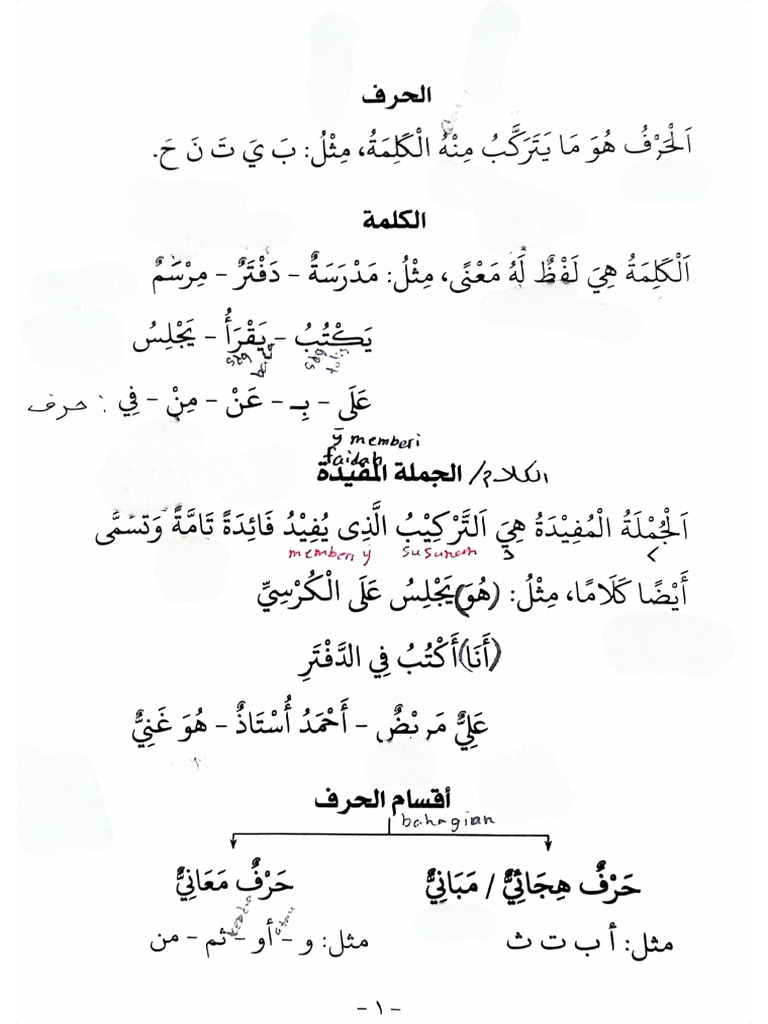 الحرف
اَلْحَرْفُ هُوَ مَا يَتَرَكَّبُ مِنْهُ الْكَلِمَةُ، مِثْلُ: بَ يَ تَ نَ حَ.
الكلمة
اَلْكَلِمَةُ هِيَ لَفْظٌ لَهُ مَعْنًى، مِثْلُ: مَدْرَسَةٌ - دَفْتَرٌ - مِرْسَمٌ
يَكْتُبُ - يَقْرَأُ - يَجْلِسُ
tulis
baca
عَلَى - بِـ - عَنْ - مِنْ - فِي : حرف
ȳ memberi
faidah
الجملة المفيدة / الكلام
اَلْجُمْلَةُ الْمُفِيْدَةُ هِيَ اَلتَّرْكِيْبُ الَّذِى يُفِيْدُ فَائِدَةً تَامَّةً وَتَسَمَّى
susunan memberi ȳ
أَيْضًا كَلَامًا، مِثْلُ: (هُوَ) يَجْلِسُ عَلَى الْكُرْسِيِّ
(أَنَا) أَكْتُبُ فِي الدَّفْتَرِ
عَلِيٌّ مَرِيْضٌ - أَحْمَدُ أُسْتَاذٌ - هُوَ غَنِيٌّ
أقسام الحرف
bahagian
حَرْفٌ هِجَائِيٌّ / مَبَانِيٌّ
حَرْفٌ مَعَانِيٌّ
مثل: أ ب ت ث
مثل: و - أو - ثم - من
atau
- ١ -